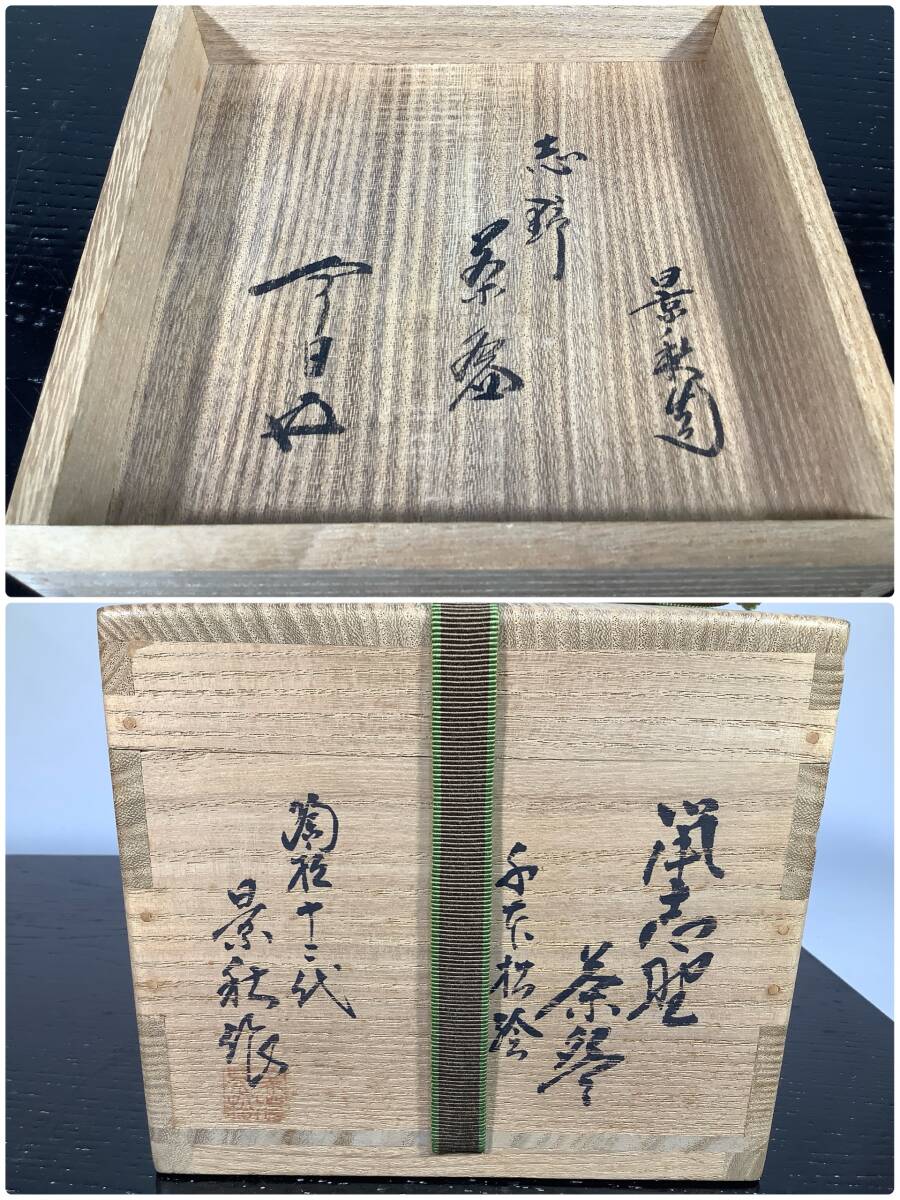 景秋
志野
茶盌
今日
鼠志野
茶碗
千本松絵
陶祖十二代
景秋作